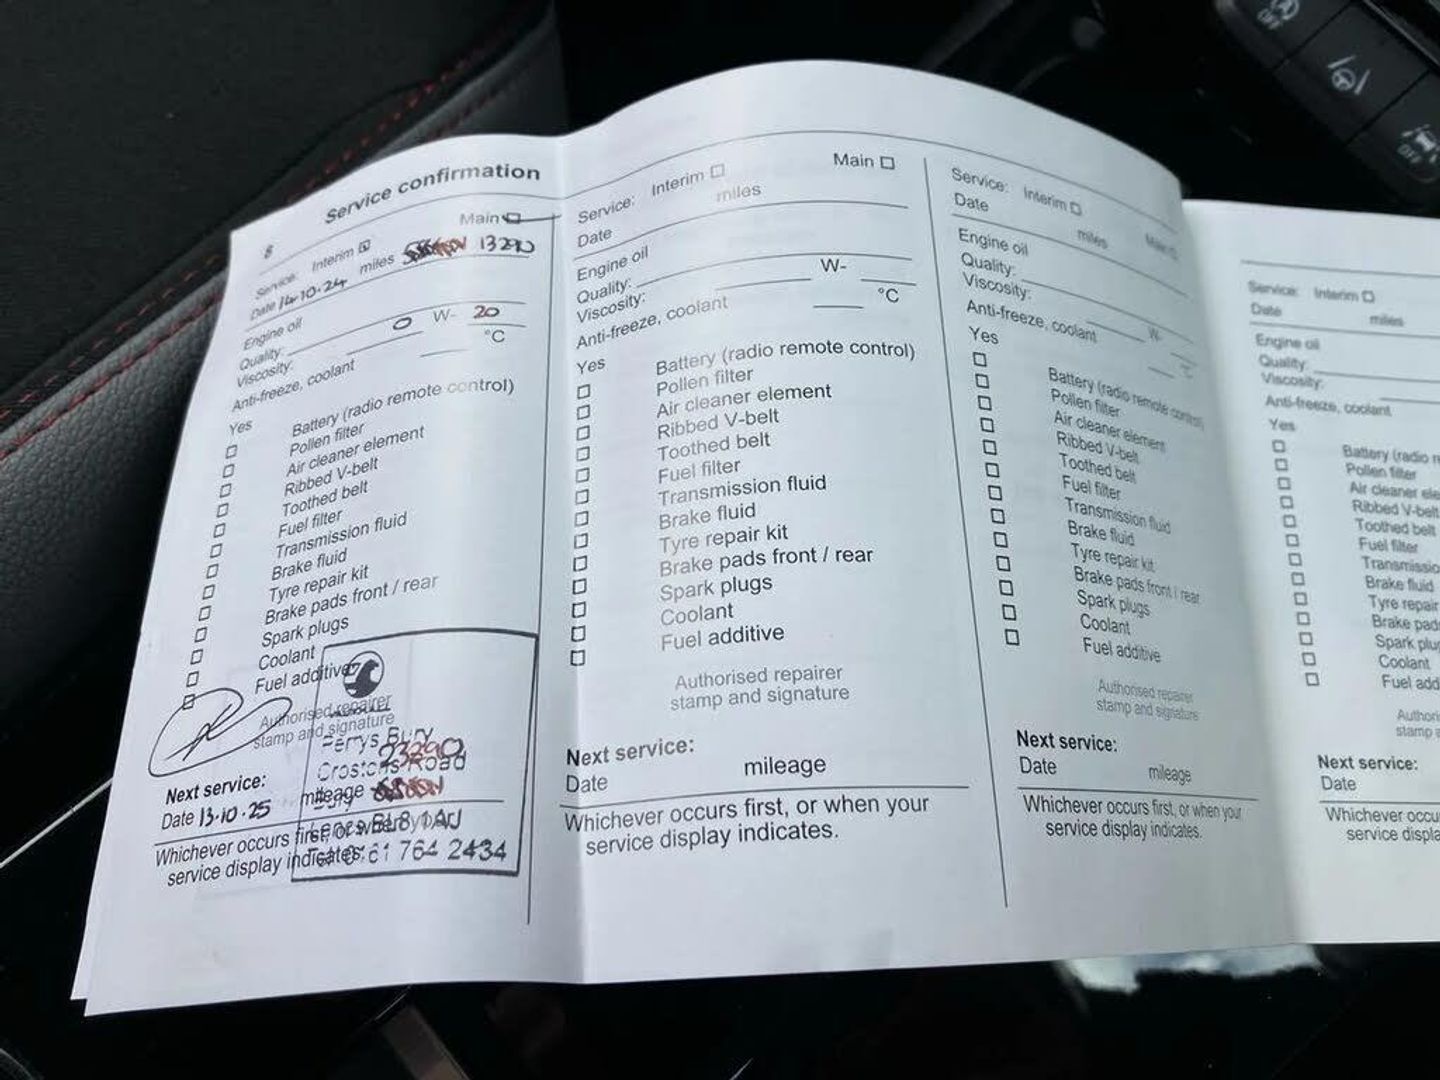 Service confirmation
8
Service: Interim Main
Date 14-10-24 miles 13290
Engine oil
Quality:
Viscosity: 0 W- 20
Anti-freeze, coolant °C
Yes
Battery (radio remote control)
Pollen filter
Air cleaner element
Ribbed V-belt
Toothed belt
Fuel filter
Transmission fluid
Brake fluid
Tyre repair kit
Brake pads front / rear
Spark plugs
Coolant
Fuel additive
Authorised repairer
stamp and signature
Perrys Bury
Crostons Road
BL8 1AJ
61 764 2434
Next service:
23290
Date 13.10.25 mileage
Whichever occurs first, or when your
service display indicates.
Service: Interim Main
Date miles
Engine oil
Quality:
Viscosity: W-
Anti-freeze, coolant °C
Yes
Battery (radio remote control)
Pollen filter
Air cleaner element
Ribbed V-belt
Toothed belt
Fuel filter
Transmission fluid
Brake fluid
Tyre repair kit
Brake pads front / rear
Spark plugs
Coolant
Fuel additive
Authorised repairer
stamp and signature
Next service:
Date mileage
Whichever occurs first, or when your
service display indicates.
Service: Interim Main
Date miles
Engine oil
Quality:
Viscosity: W-
Anti-freeze, coolant °C
Yes
Battery (radio remote control)
Pollen filter
Air cleaner element
Ribbed V-belt
Toothed belt
Fuel filter
Transmission fluid
Brake fluid
Tyre repair kit
Brake pads front / rear
Spark plugs
Coolant
Fuel additive
Authorised repairer
stamp and signature
Next service:
Date mileage
Whichever occurs first, or when your
service display indicates.
Service: Interim
Date miles
Engine oil
Quality:
Viscosity:
Anti-freeze, coolant
Yes
Battery (radio r
Pollen filter
Air cleaner ele
Ribbed V-belt
Toothed belt
Fuel filter
Transmissio
Brake fluid
Tyre repair
Brake pads
Spark plu
Coolant
Fuel add
Authori
stamp a
Next service:
Date
Whichever occu
service displa
OFF
OFF